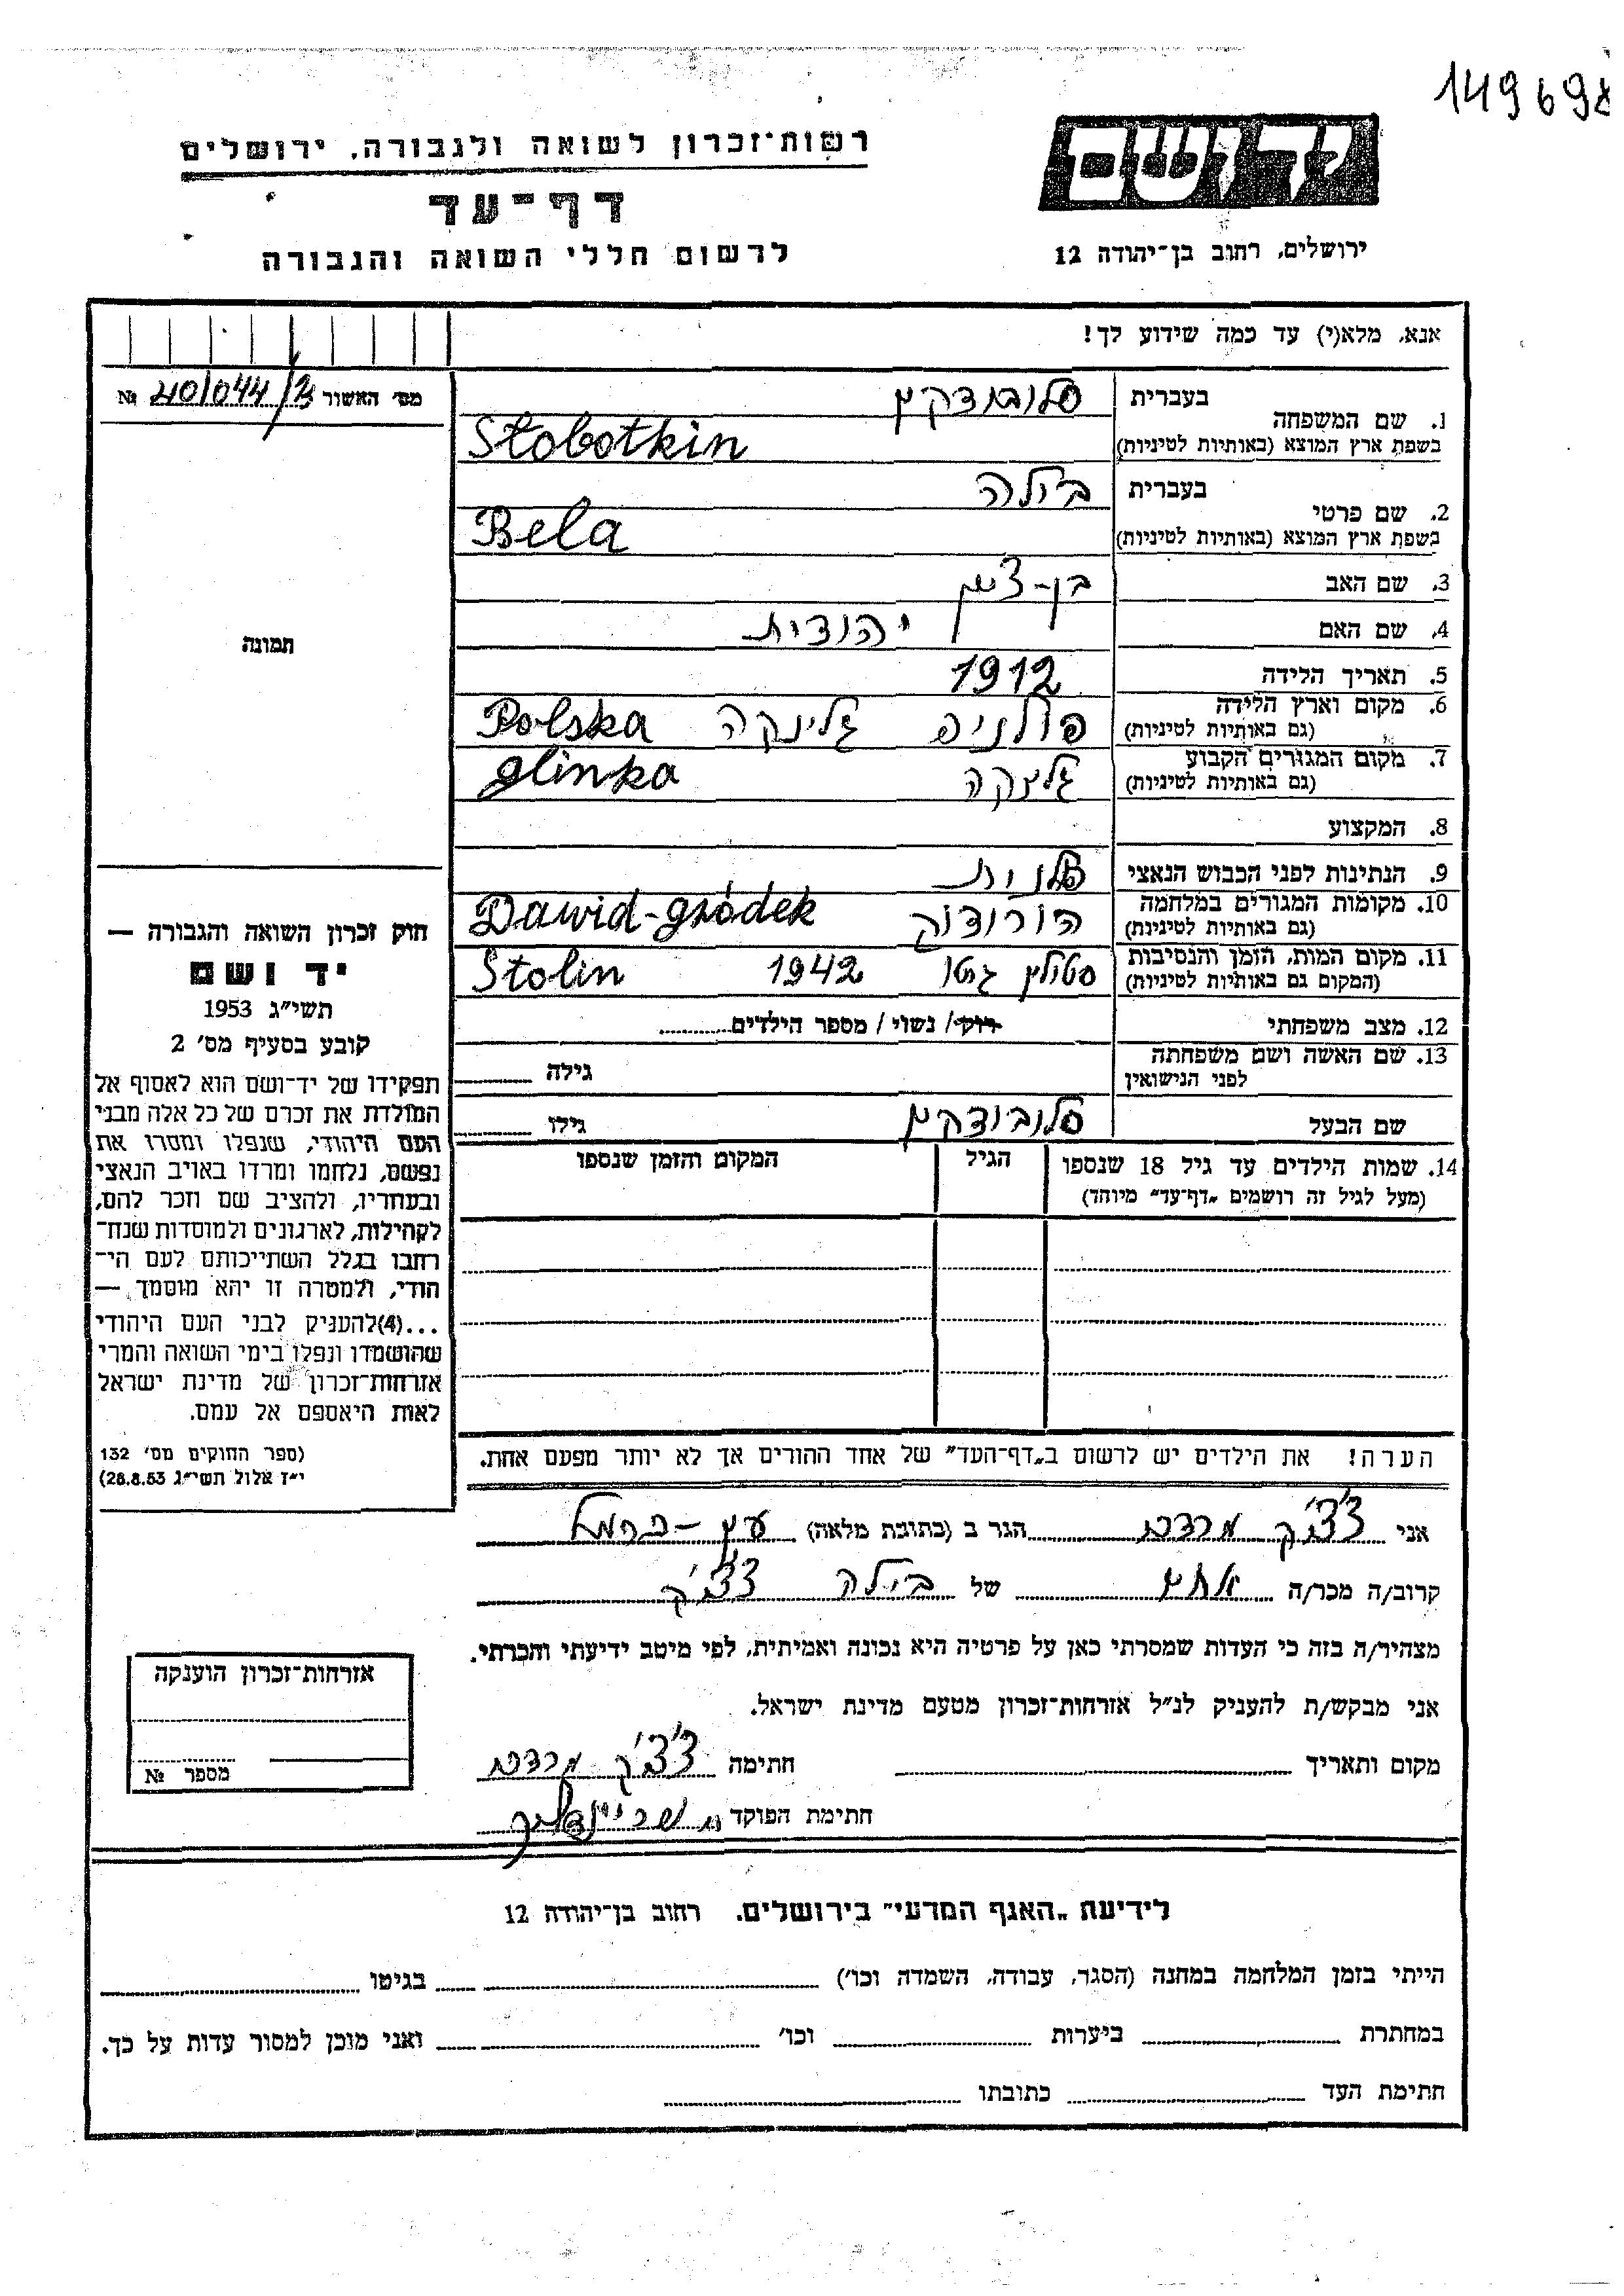 149698
יד ושם
ירושלים, רחוב בן־יהודה 12
רשות־זכרון לשואה ולגבורה, ירושלים
דף־עד
לרשום חללי השואה והגבורה
אנא, מלא(י) עד כמה שידוע לך!
מס׳ האשור № 40/044/3
1. שם המשפחה בעברית סלובודקין
בשפת ארץ המוצא (באותיות לטיניות) Słobotkin
2. שם פרטי בעברית ביילה
בשפת ארץ המוצא (באותיות לטיניות) Bela
3. שם האב בן-ציון
4. שם האם יהודית
5. תאריך הלידה 1912
6. מקום וארץ הלידה (גם באותיות לטיניות) פולניה גלינקה Polska
7. מקום המגורים הקבוע (גם באותיות לטיניות) גלינקה glinka
8. המקצוע
9. הנתינות לפני הכבוש הנאצי פולנית
10. מקומות המגורים במלחמה (גם באותיות לטינינת) הורודוק Dawid-gródek
11. מקום המות, הזמן והנסיבות (המקום גם באותיות לטיניות) סטולין גטו 1942 Stolin
12. מצב משפחתי רוק/ נשוי/ מספר הילדים
13. שם האשה ושם משפחתה לפני הנישואין גילה
שם הבעל סלובודקין גילו
14. שמות הילדים עד גיל 18 שנספו הגיל המקום והזמן שנספו
(מעל לגיל זה רושמים „דף־עד״ מיוחד)
הערה! את הילדים יש לרשום ב„דף־העד״ של אחד ההורים אך לא יותר מפעם אחת.
תמונה
חוק זכרון השואה והגבורה —
יד ושם
תשי״ג 1953
קובע בסעיף מס׳ 2
תפקידו של יד־ושם הוא לאסוף אל
המולדת את זכרם של כל אלה מבני
העם היהודי, שנפלו ומסרו את
נפשם, נלחמו ומרדו באויב הנאצי
ובעוזריו, ולהציב שם וזכר להם,
לקהילות, לארגונים ולמוסדות שנח־
רחבו בגלל השתייכותם לעם הי־
הודי, ולמטרה זו יהא מוסמך —
...(4)להעניק לבני העם היהודי
שהושמדו ונפלו בימי השואה והמרי
אזרחות־זכרון של מדינת ישראל
לאות היאספם אל עמם.
(ספר החוקים מס׳ 132
י״ז אלול תשי״ג 28.8.53)
אני צ׳צ׳יק מרדכי הגר ב (כתובת מלאה) עין-כרמל
קרוב/ה מכר/ה אחיו של ביילה צ׳צ׳יק
מצהיר/ה בזה כי העדות שמסרתי כאן על פרטיה היא נכונה ואמיתית, לפי מיטב ידיעתי והכרתי.
אני מבקש/ת להעניק לנ״ל אזרחות־זכרון מטעם מדינת ישראל.
מקום ותאריך חתימה צ׳צ׳יק מרדכי
חתימת הפוקד
אזרחות־זכרון הוענקה
מספר №
לידיעת „האגף המדעי״ בירושלים. רחוב בן־יהודה 12
הייתי בזמן המלחמה במחנה (הסגר, עבודה, השמדה וכו׳) בגיטו
במחתרת ביערות וכו׳ ואני מוכן למסור עדות על כך.
חתימת העד כתובתו